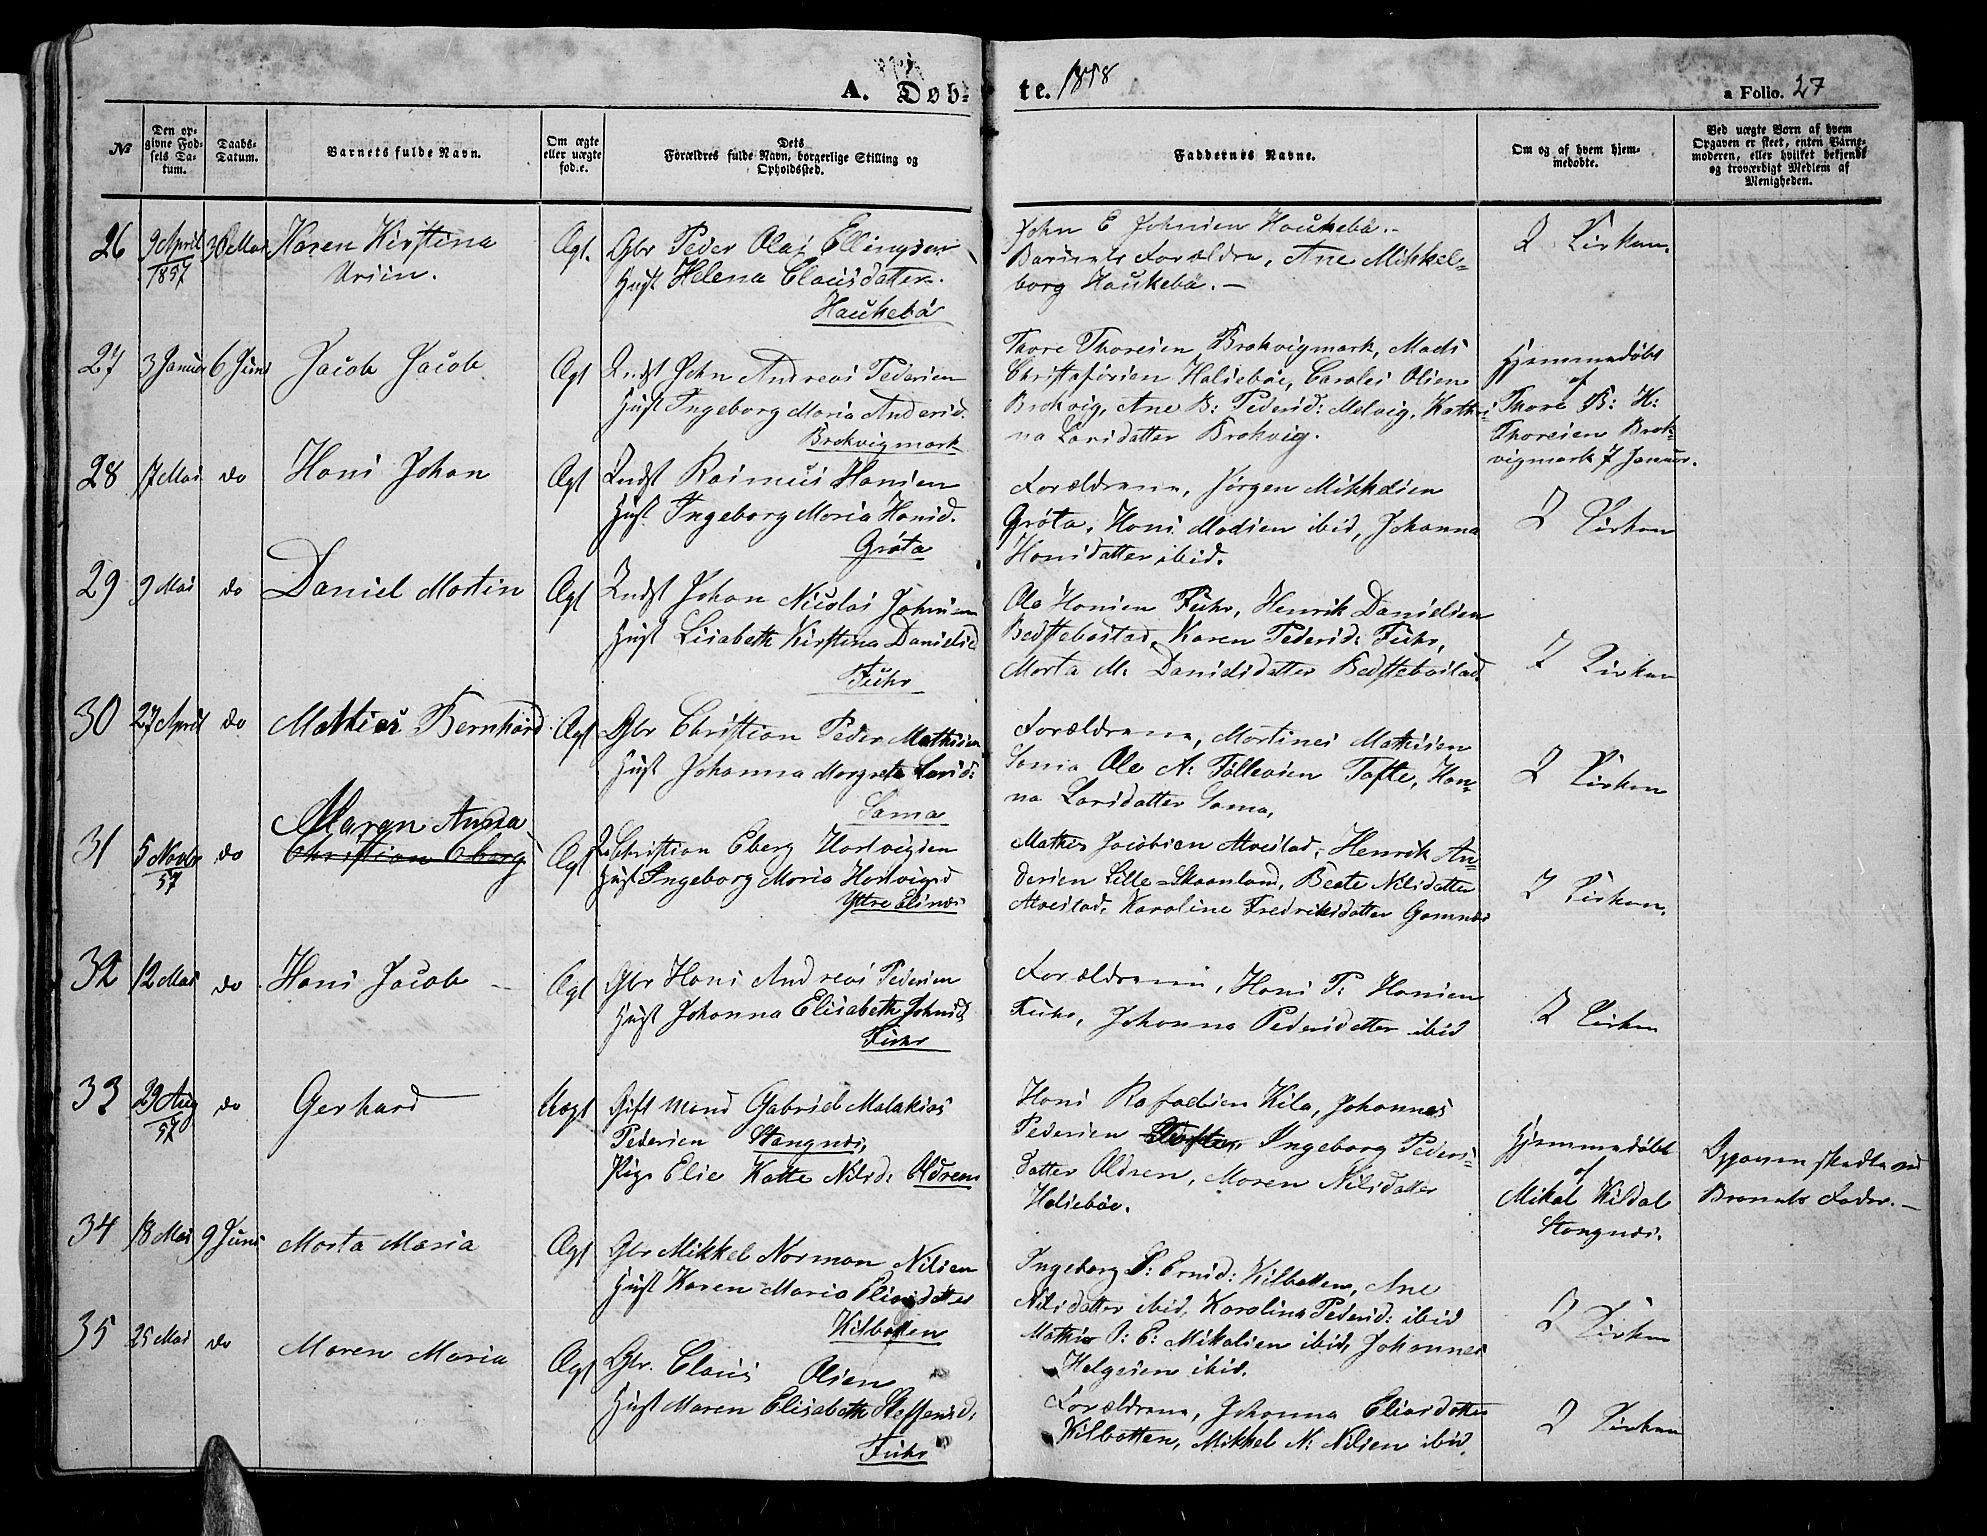 A. Døb-
te. 1858
a Folio. 27
No
Den opgivne Fødsels Datum.
Daabs-Datum.
Barnets fulde Navn.
Om ægte eller uægte fød.e.
Dets Forældres fulde Navn, borgerlige Stilling og Opholdssted.
Faddernes Navne.
Om og af hvem hjemmedøbte.
Ved uægte Børn af hvem Opgaven er skeet, enten Barnemoderen, eller hvilket bekjendt og troværdigt Medlem af Menigheden.
26 9 April 1857 30 Mai Karen Kirstina Ægt. Gbr Peder Olai Ellingsen
Hust Helena Clausdatter.
Haukebø
John E Johnsen Haukebø.
Barnets Forældre, Ane Mikkels-
borg Haukebø. —
I Kirken.
27 3 Januar 6 Juni Jacob Jacob Ægt Indst John Andreas Pedersen
Hust Ingeborg Maria Andersd.
Brokvigmark
Thore Thoresen Brokvigmark, Mads
Christofersen Halsebøe, Olsen
Brokvig, Ane B: Pedersd: Melvig, Kathri-
na Larsdatter Brokvig.
Hjemmedøbt
af
Thore B: H:
Thoresen Brok-
vigmark 7 Januar.
28 17 Mai do Hans Johan Ægt Indst Rasmus Hansen
Hust Ingeborg Maria Hansd.
Grøta
Forældrene, Jørgen Mikkelsen
Grøta, Hans Madsen ibid, Johanna
Hansdatter ibid.
I Kirken
29 9 Mai do Daniel Martin Ægt Indst Johan Nicolai Johnsen
Hust Lisabeth Kirstina Danielsd
Fuhr
Ole Hansen Fuhr, Henrik Danielsen
Bedstebostad, Karen Pedersd: Fuhr,
Marta M: Danielsdatter Bedstebostad
I Kirken
30 27 April do Mathias Bernhard Ægt Gbr Christian Peder Mathisen
Hust Johanna Margreta Larsd:
Sama
Forældrene, Martines Mathisen
Sama Ole A: Tollevsen Tofte, Han-
na Larsdatter Sama,
I Kirken
31 5 Novbr 57 do Maren Anna
Christian Eberg Ægt Christian Eberg Hartvigsen
Hust Ingeborg Maria Hartvigsd
Yttre Elgnæs
Mathis Jacobsen Alvestad, Henrik An-
dersen Lille-Skaanland, Beate Nilsdatter
Alvestad, Karoline Fredriksdatter Gamnæs
I Kirken.
32 12 Mai do Hans Jacob Ægt Gbr Hans Andreas Pedersen
Hust Johanna Elisabeth Johnsd.
Fuhr
Forældrene, Hans P: Hansen
Fuhr, Johanna Pedersdatter ibid
I Kirken
33 29 Aug 57 do Gerhard Uægt Gift Mand Gabriel Malakias
Pedersen Stangnæs,
Pige Elie Katte Nilsd: Aldrens
Hans Rafaelsen Kila, Johannes
Pedersen Ingeborg Peders-
datter Aldren, Maren Nilsdatter
Halsebøe.
Hjemmedøbt
af
Mikal Kildal
Stangnæs.
Opgaven skedte ved
Barnets Fader. —
34 18 Mai 9 Juni Marta Maria Ægt Gbr Mikkel Norman Nilsen
Hust Karen Maria Eliasdatter
Kilbotten
Ingeborg Kilbotten, Ane
Nilsdatter ibid, Karolina Pedersd: ibid
Mathis P: Mikalsen ibid, Johannes
Helgesen ibid.
I Kirken
35 25 Mai do Maren Maria Ægt Gbr. Claus Olsen
Hust Maren Elisabeth Steffensd.
Fuhr
Forældrene, Johanna Eliasdatter
Kilbotten, Mikkel N: Nilsen ibid.
I Kirken